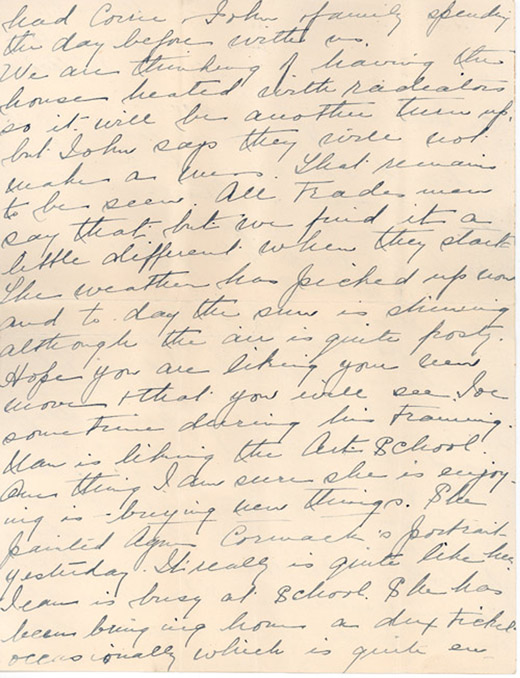 had Corrie John & family spending
the day before with us.
We are thinking of having the
house heated with radiators
so it will be another turn up,
but John says they will not
make a mess. That remains
to be seen. All Trades men
say that but we find it a
little different when they start
The weather has picked up now
and to day the sun is shining
although the air is quite frosty.
Hope you are liking your new
move & that you will see Joe
sometime during his Training.
Nan is liking the Art School.
One thing I am sure she is enjoy-
ing is - buying new things. She
painted Agnes Cormack's portrait
yesterday. It really is quite like her.
Jean is busy at School. She has
been bringing home a dux ticket
occasionally which is quite en